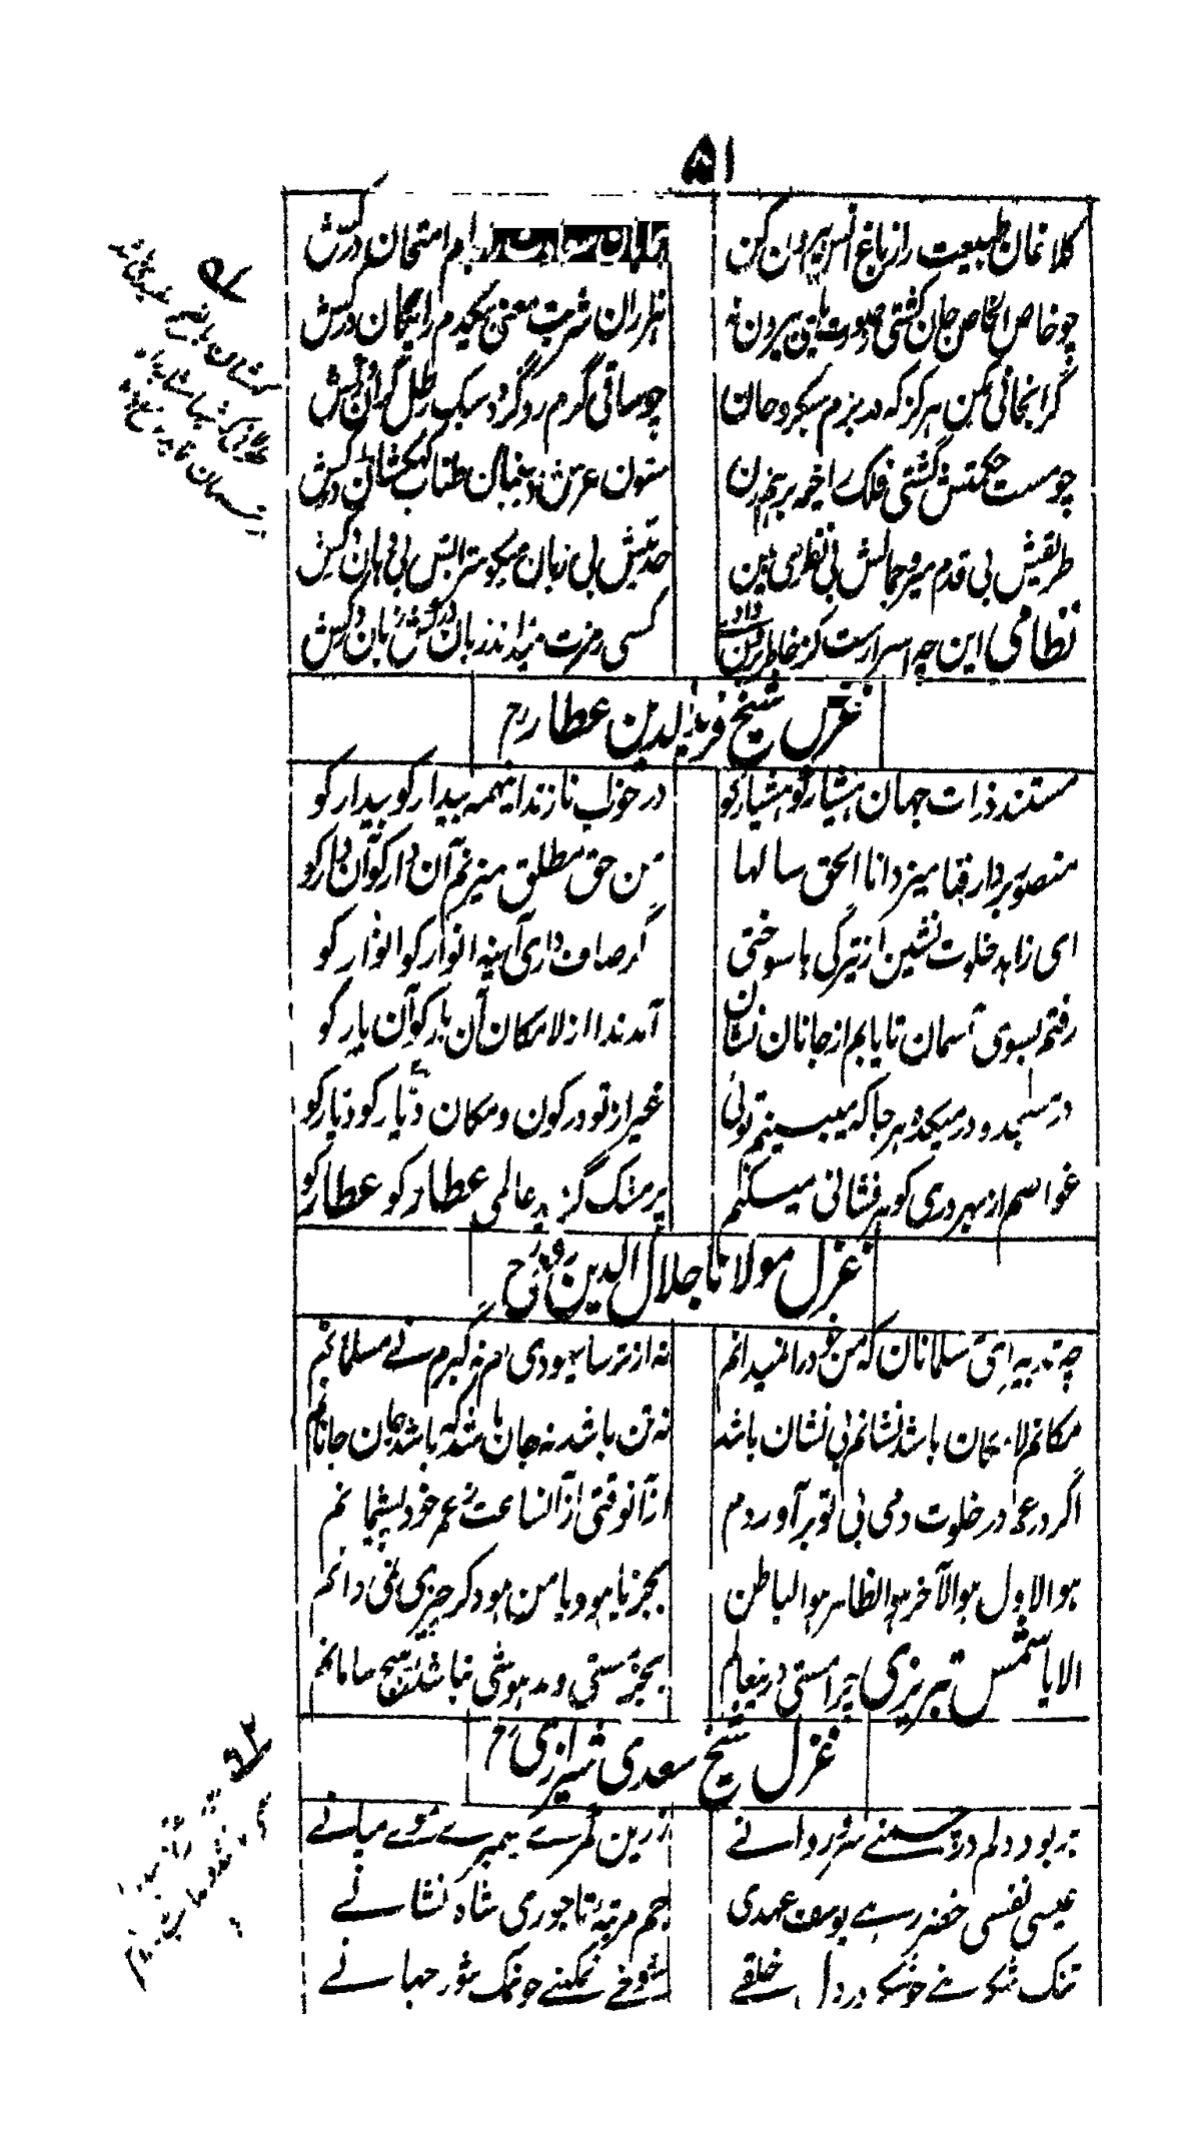 ۵۱
کلاغان طبیعت را ز باغ انس بیرون کن
امتحان درکش
چو خاص الخاص جان گشتی ز صورت پای بیرون نه
هزاران شربت معنی بیکدم رایگان درکش
گرانجانی مکن هرگز که در بزم سبکروحان
چو ساقی گرم رو گردد سبک رطل گران درکش
چو مست حکمتش گشتی فلک را خیمه برهم زن
ستون عرش در جنبان طناب کهکشان درکش
طریقش بی قدم میرو جمالش بی نظر می بین
حدیثش بی زبان میگو شرابش بی دهان درکش
نظامی این چه اسرارست کز خاطر برون دادی
کسی رمزت نمیداند زبان درکش زبان درکش
غزل شیخ فریدالدین عطار رح
مستند ذرات جهان هشیار کو هشیار کو
در خواب نازند اینهمه بیدار کو بیدار کو
منصور بردار فنا میزد انا الحق سالها
من حق مطلق میزنم آن دار کو آن دار کو
ای زاهد خلوت نشین از تیرگی ها سوختی
گر صاف داری آینه انوار کو انوار کو
رفتم بسوی آسمان تا یابم از جانان نشان
آمد ندا از لامکان آن یار کو آن یار کو
در مسجد و در میکده هر جا که میبینم توئی
غیر از تو در کون و مکان دیار کو دیار کو
غواصم از بهر دری گوهر فشانی میکنم
پر مشک گردید عالمی عطار کو عطار کو
غزل مولانا جلال الدین رومی رح
چه تدبیر ای مسلمانان که من خود را نمیدانم
نه از ترسا یهودی ام نه گبرم نے مسلمانم
مکانم لامکان باشد نشانم بی نشان باشد
نه تن باشد نه جان باشد که باشد جان جانانم
اگر در عمر در خلوت دمی بی تو برآوردم
از آنوقتی از آنساعت ز عمر خود پشیمانم
هو الاول هو الآخر هو الظاهر هو الباطن
بجز یا هو و یا من هو دگر چیزی نمی دانم
الا یا شمس تبریزی چرا مستی درینعالم
بجز مستی و مدهوشی نباشد هیچ سامانم
غزل شیخ سعدی شیرازی رح
بربود دلم در چمنے سرو روانے
زرین کمرے سیمبرے موے میانے
عیسی نفسی خضر رہے یوسف عهدی
جم مرتبهٔ تاجوری شاہ نشانے
تنک شکرے چو شکر در دل خلقے
شوخے نمکینے چو نمک شور جهانے